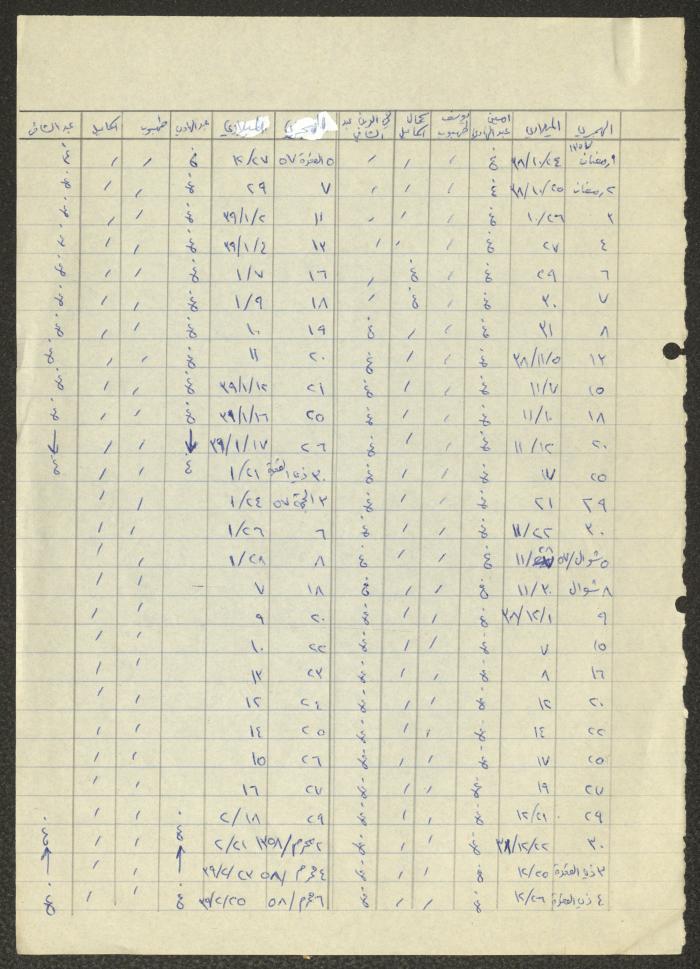 الهجري الميلادي امين عبد الهادي يوسف طهبوب كمال محي الدين عبد الشافي الهجري الميلادي عبد الهادي طهبوب عبد الشافي
١ رمضان ١٣٥٧ ٣٨/١٠/٢٤ غ / / / ٥ القعدة ٥٧ ١٢/٢٧ غ / / غ
٢ رمضان ٣٨/١٠/٢٥ غ / / / ٧ ٢٩ غ / / غ
٣ ١٠/٢٦ غ / / / ١١ ٣٩/١/٢ غ / / غ
٤ ٢٧ غ / / / ١٣ ٣٩/١/٤ غ / / غ
٦ ٢٩ غ / غ / ١٦ ١/٧ غ / / غ
٧ ٣٠ غ / غ / ١٨ ١/٩ غ / / غ
٨ ٣١ غ / / غ ١٩ ١٠ غ / / غ
١٢ ٣٨/١١/٥ غ / / غ ٢٠ ١١ غ / / غ
١٥ ١١/٧ غ / / غ ٢١ ٣٩/١/١٢ غ / / غ
١٨ ١١/١٠ غ / / غ ٢٥ ٣٩/١/١٦ غ / / غ
٢٠ ١١/١٢ غ / / غ ٢٦ ٣٩/١/١٧ ↓ / / ←
٢٥ ١٧ غ / / غ ٣٠ ذي القعدة ١/٢١ غ / / غ
٢٩ ٢١ غ / / غ ٣ الحجة ٥٧ ١/٢٤ / /
٣٠ ١١/٢٢ غ / / غ ٦ ١/٢٦ / /
٥ شوال/٥٧ ١١/ غ / / غ ٨ ١/٢٨ / /
٨ شوال ١١/٣٠ غ / / غ ١٨ ٧ / /
٩ ٣٨/١٢/١ غ / / غ ٢٠ ٩ / /
١٥ ٧ غ / / غ ٢٢ ١٠ / /
١٦ ٨ غ / / غ ٢٣ ١٣ / /
٢٠ ١٢ غ / / غ ٢٤ ١٢ / /
٢٢ ١٤ غ / / غ ٢٥ ١٤ / /
٢٥ ١٧ غ / / غ ٢٦ ١٥ / /
٢٧ ١٩ غ / / غ ٢٧ ١٦ / /
٢٩ ١٢/٢١ غ / / غ ٢٩ ٢/١٨ غ / / غ
٣٠ ٣٨/١٢/٢٢ غ / / غ ٢ محرم/١٣٥٨ ٢/٢١ ↑ / / ↑
٣ ذي القعدة ١٢/٢٥ غ / / غ ٤ محرم/٥٨ ٣٩/٢/٢٣ / /
٤ ذي القعدة ١٢/٢٦ غ / / غ ٦ محرم/٥٨ ٣٩/٢/٢٥ غ / / غ